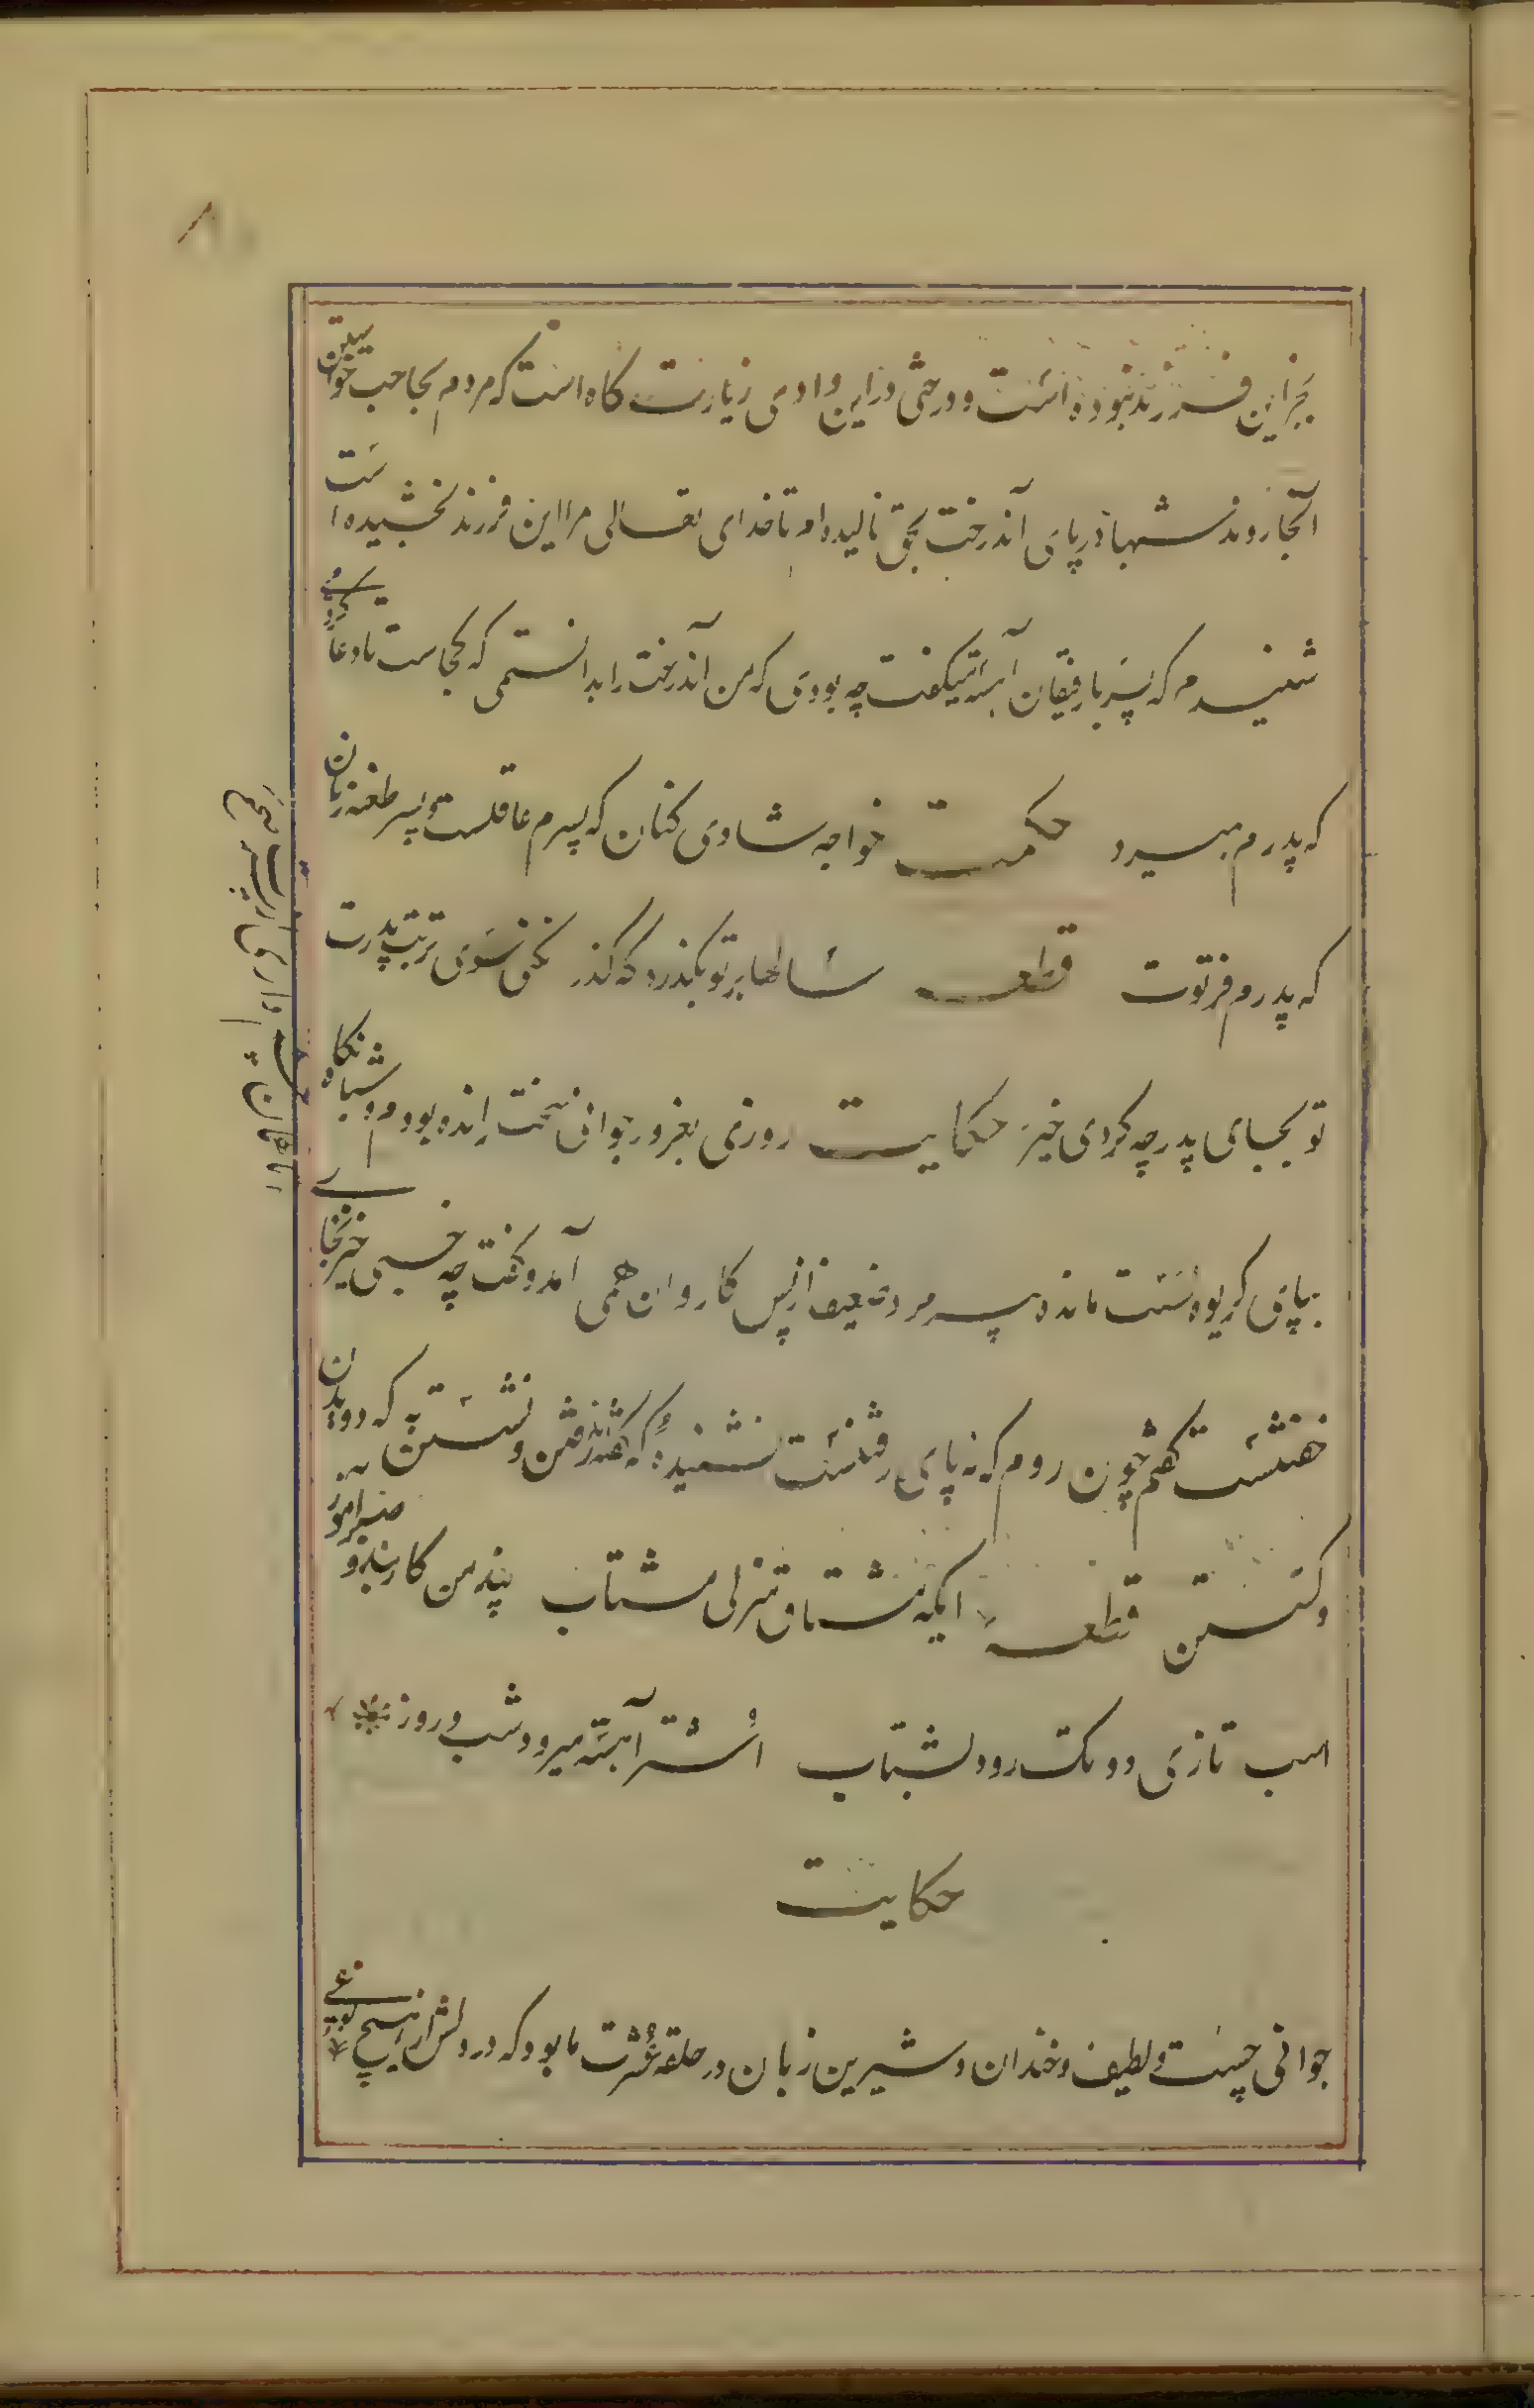 بجز این فرزند نبوده است و درختی در این وادی زیارت کاه است که مردم بحاجت خواستن
آنجا روند شبها در پای آندرخت بحق نالیده‌ام تا خدای تعالی مرا این فرزند بخشیده است
شنیدم که پسر با رفیقان آهسته میکفت چه بودی که من آندرخت را بدانستمی که کجاست تا دعا کردمی
که پدرم بمیرد حکمت خواجه شادی کنان که پسرم عاقلست و پسر طعنه زنان
که پدرم فرتوت قطعه سالها بر تو بگذرد که گذر نکنی سوی تربت پدرت
تو بجای پدر چه کردی خیر حکایت روزی بغرور جوانی سخت رانده بودم و شبانگاه
بپای کریوه سست مانده پیر مرد ضعیف از پس کاروان همی آمد و گفت چه خسبی خیز نه جای
خفتنست گفتم چون روم که نه پای رفتنست نشنیدهٔ که گفته‌اند رفتن و نشستن به که دویدن
و گسستن قطعه ایکه مشتاق منزلی مشتاب پند من کار بند و صبر آموز
اسب تازی دو تک رود بشتاب اشتر آهسته میرود شب و روز
حکایت
جوانی چست و لطیف و خندان و شیرین زبان در حلقه عشرت ما بود که در دلش از هیچ نوعی